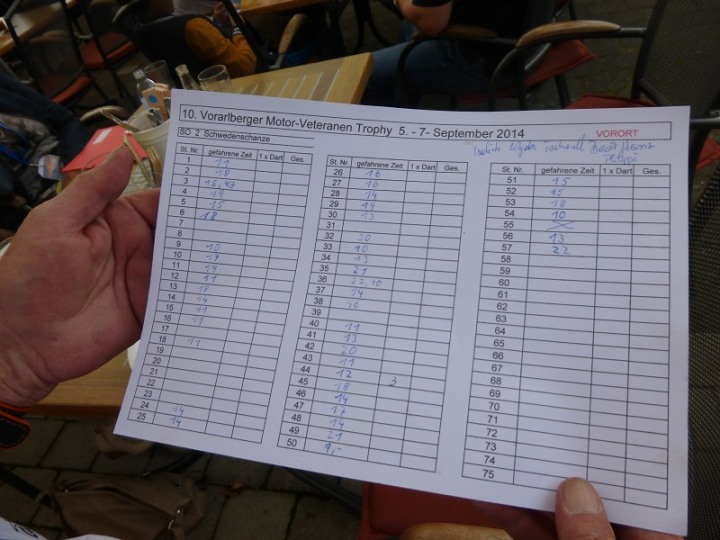 10. Vorarlberger Motor-Veteranen Trophy 5. - 7- September 2014
SO 2 Schwedenschanze
VORORT
St. Nr. gefahrene Zeit 1 x Dart Ges.
1 11
2 18
3
4
5 15
6 18
7
8
9 10
10 19
11
12 11
13 18
14 14
15
16
17
18 11
19
20
21
22
23
24 14
25 14
St. Nr. gefahrene Zeit 1 x Dart Ges.
26 16
27 16
28 14
29 14
30 13
31
32
33 10
34 13
35 21
36 22,10
37 14
38
39
40 11
41 13
42 20
43 11
44 12
45 18 3
46 14
47
48 14
49 21
50 9,-
St. Nr. gefahrene Zeit 1 x Dart Ges.
51 15
52 15
53 18
54 10
55
56 13
57 22
58
59
60
61
62
63
64
65
66
67
68
69
70
71
72
73
74
75